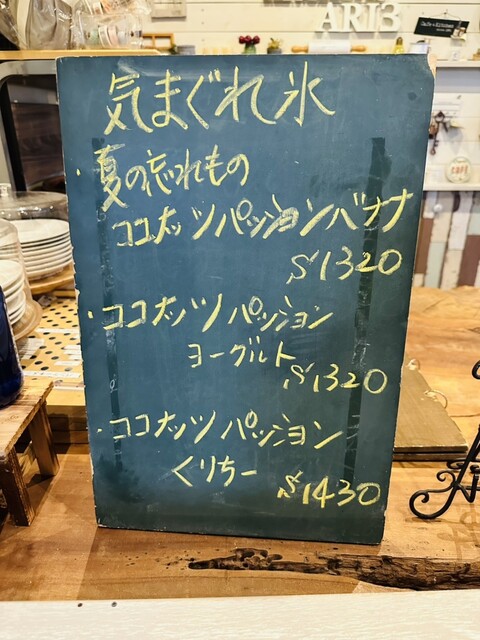 気まぐれ氷
・夏の忘れもの
ココナッツパッションバナナ
$1320
・ココナッツパッション
ヨーグルト
$1320
・ココナッツパッション
くりちー
$1430
ART3
CAFE